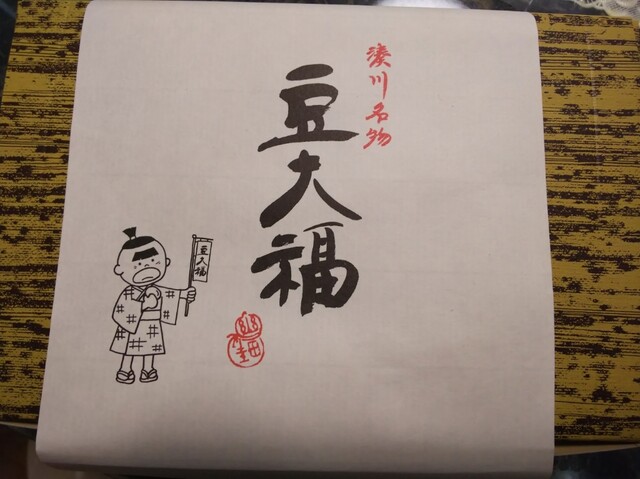 湊川名物
豆大福
豆大福